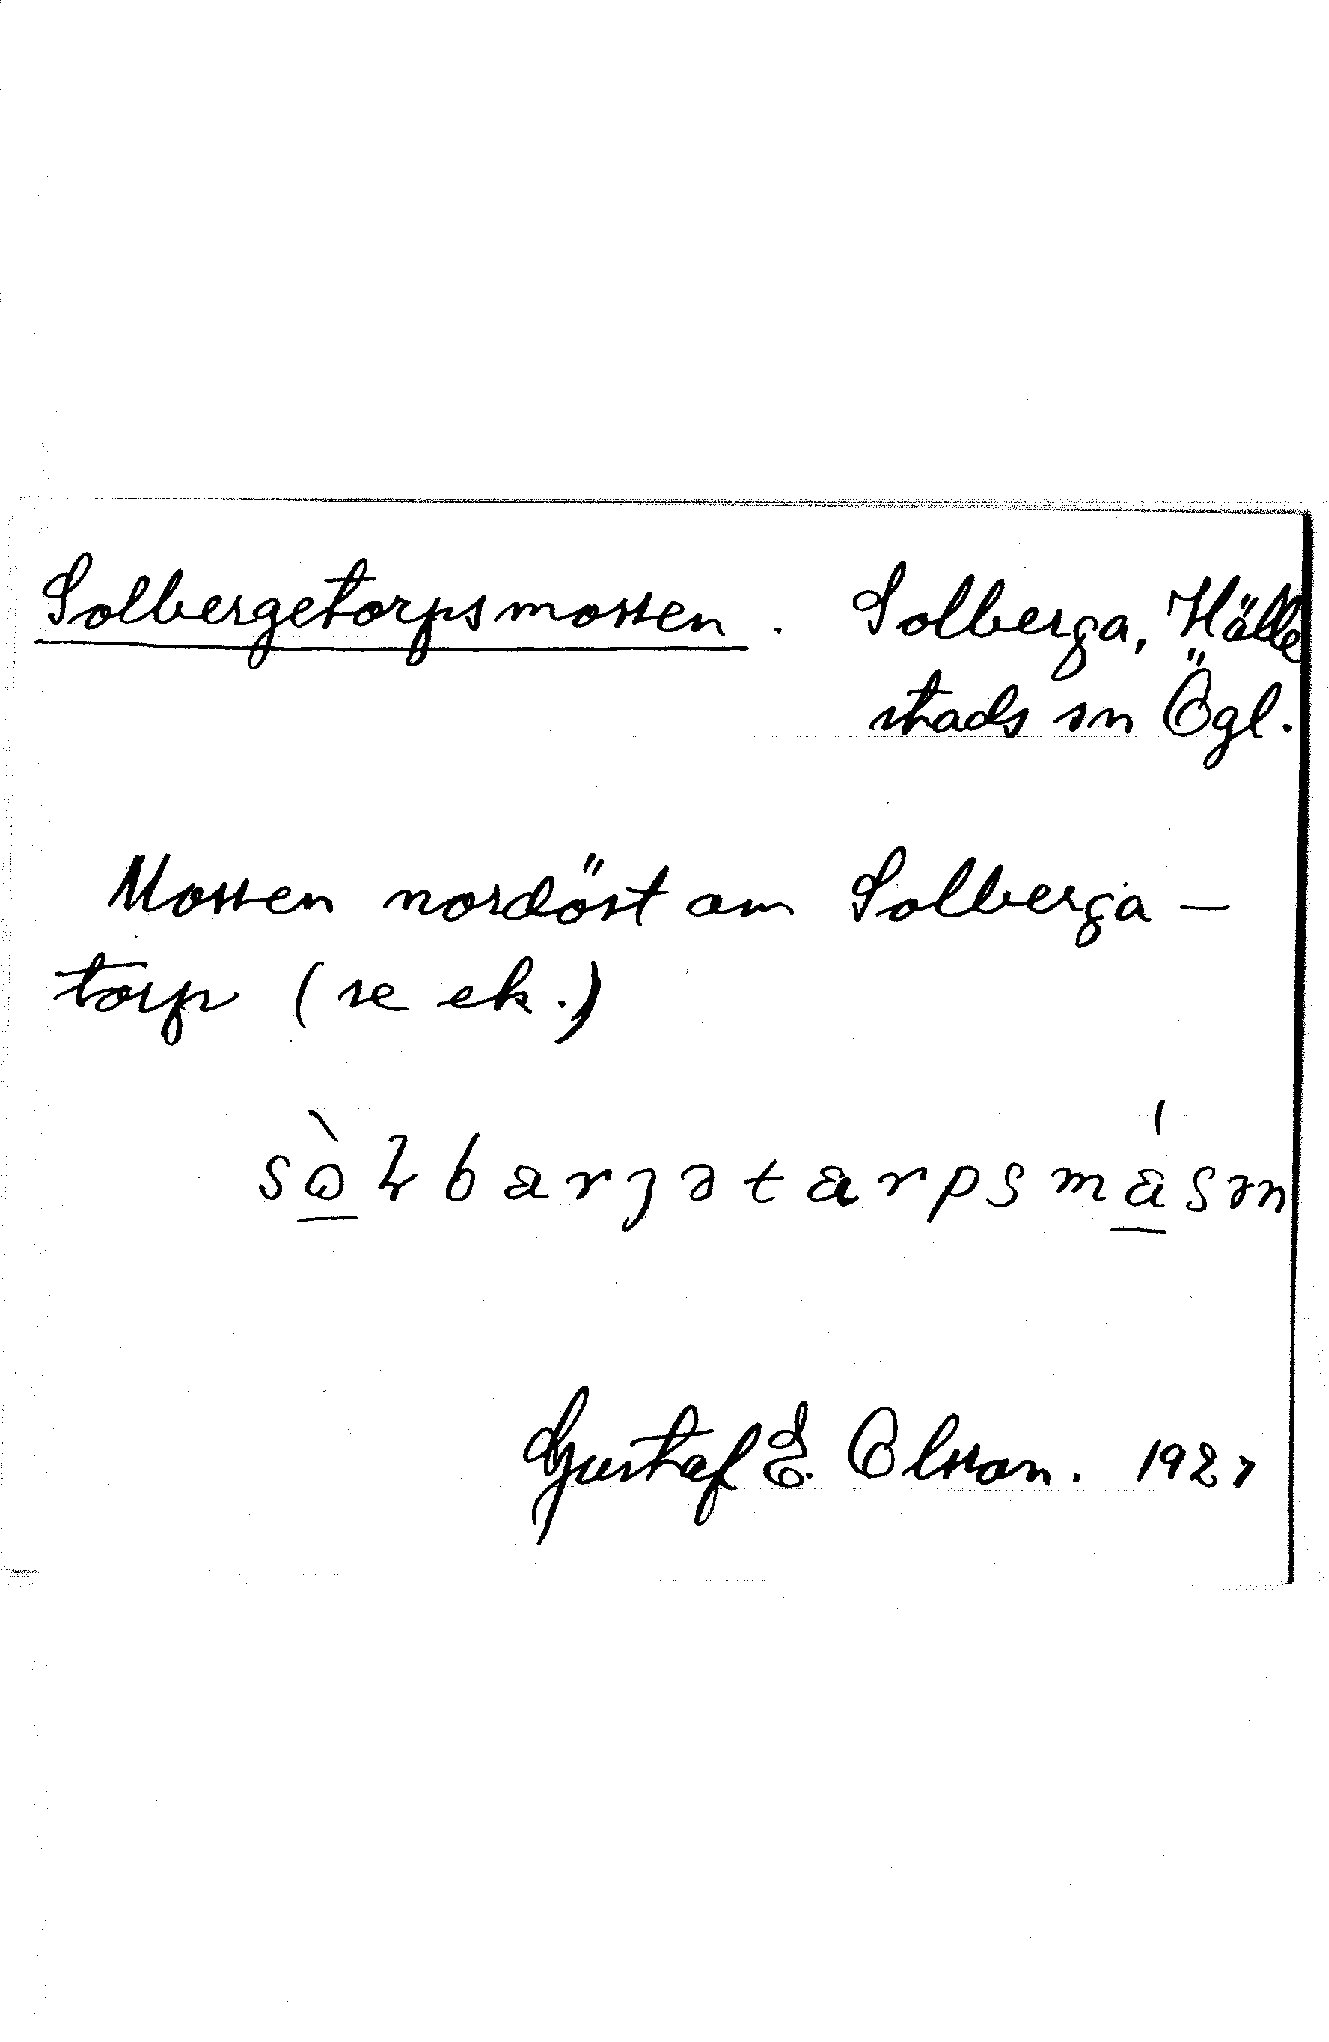 Solbergetorpsmossen. Solberga, Hälle
stads sn Ögl.
Mossen nordöst om Solberga-
torp (se ek.)
sò̱ɫbargətarpsmá̱sən
Gustaf E. Olsson. 1927